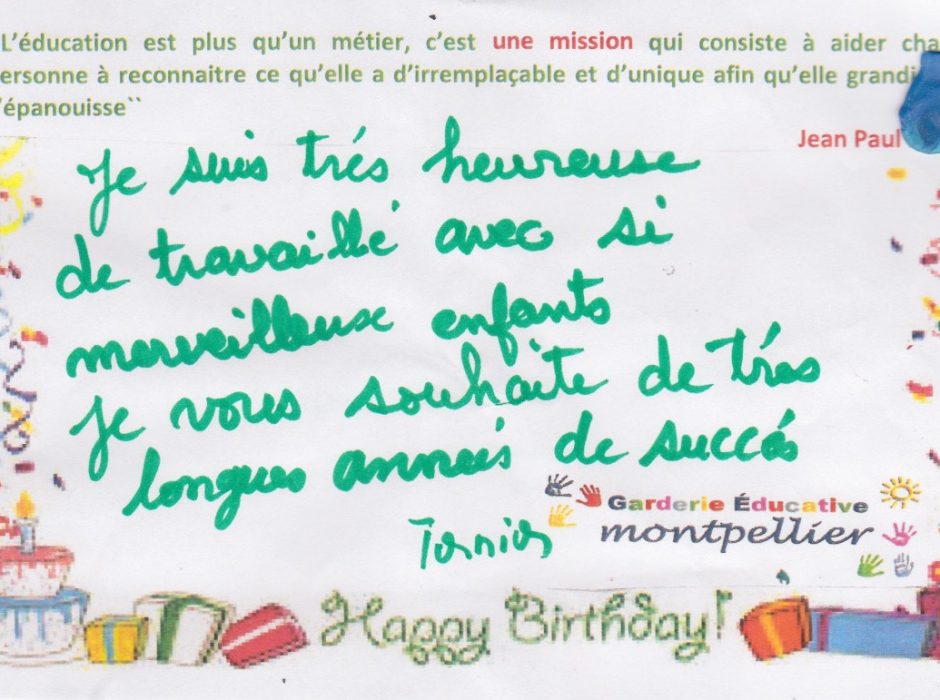 L'éducation est plus qu'un métier, c'est une mission qui consiste à aider cha
ersonne à reconnaitre ce qu'elle a d'irremplaçable et d'unique afin qu'elle grandi
'épanouisse``
Jean Paul
Je suis trés heureuse
de travaillé avec si
merveilleuse enfants
Je vous souhaite de trés
longues années de succés
Garderie Éducative
montpellier
Happy Birthday!